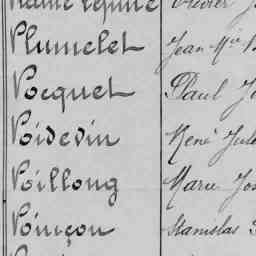 Plumelet Jean Mie
Pocquet Paul
Poidevin René Jules
Poillong Marie Jos
Poinçon Stanislas